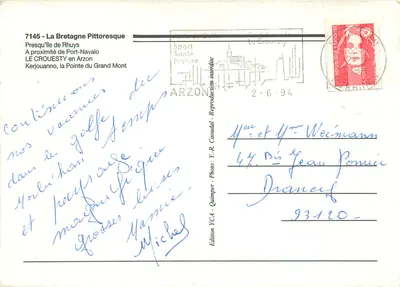 7145 - La Bretagne Pittoresque
Presqu'île de Rhuys
A proximité de Port-Navalo
LE CROUESTY en Arzon
Kerjouanno, la Pointe du Grand Mont
Sport
ARZON
2-6-94
Continuons
nos vacances
dans le golfe du
Morbihan temps
et paysage
magnifique
grosses bises
Mamie
Michel
Edition YCA - Quimper - Photo : Y.-R. Caoudal - Reproduction interdite
Mme et Mme Weimann
47 Bis Jean
Drancy
93120